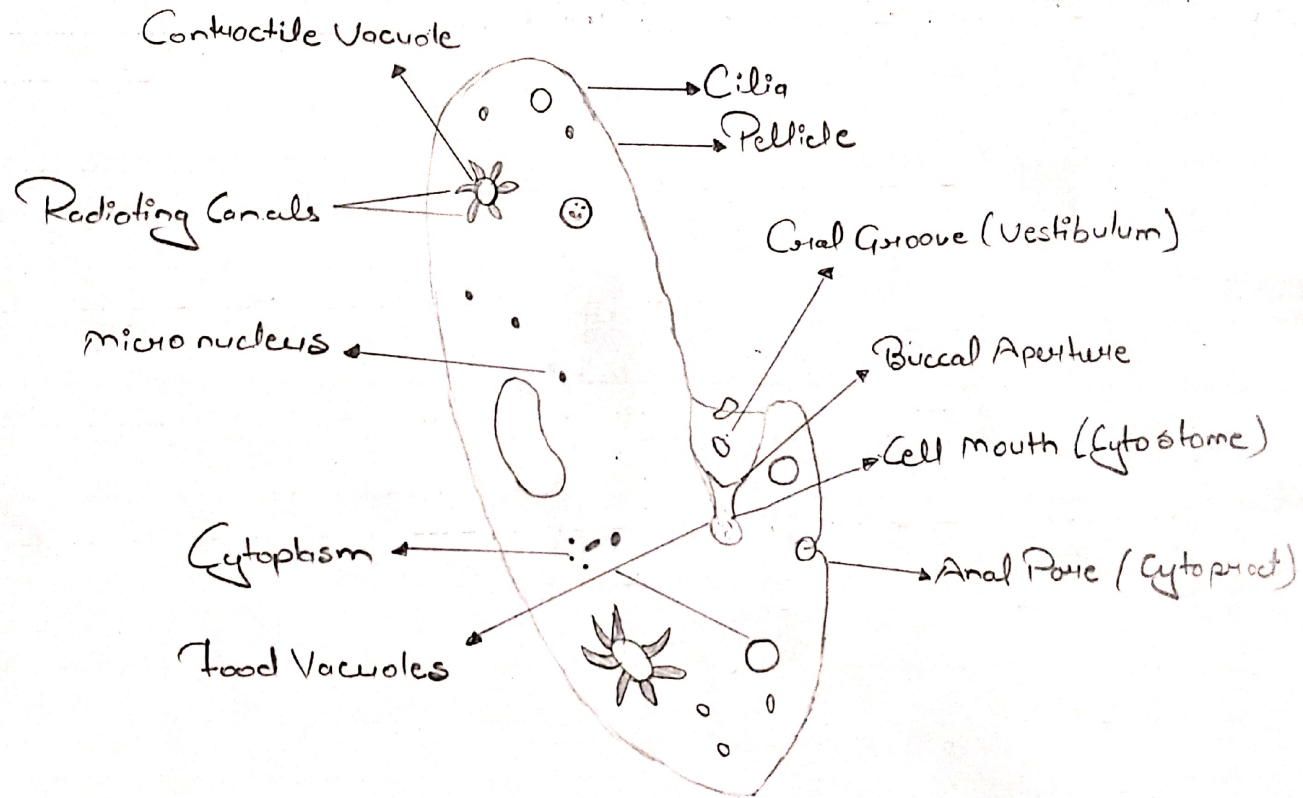 Contractile Vacuole
Cilia
Pellicle
Radiating Canals
Oral Groove (Vestibulum)
micro nucleus
Buccal Aperture
Cell mouth (Cytostome)
Cytoplasm
Anal Pore (Cytoproct)
Food Vacuoles